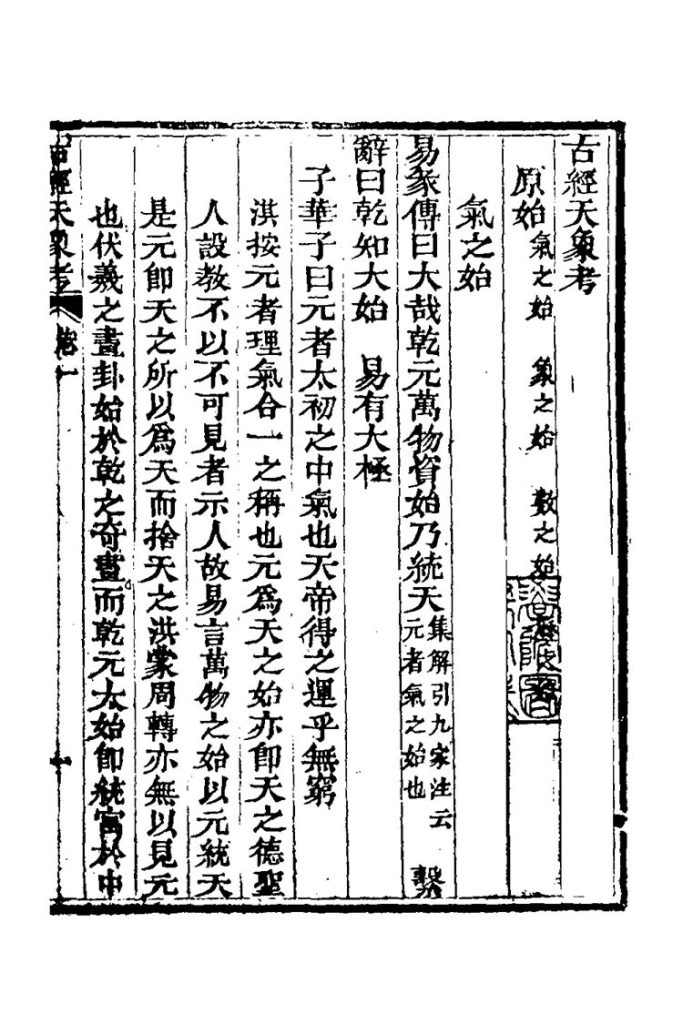 古經天象考
原始 氣之始 象之始 數之始
氣之始
易彖傳曰大哉乾元萬物資始乃統天集解引九家注云元者氣之始也 繫
辭曰乾知大始 易有大極
子華子曰元者太初之中氣也天帝得之運乎無窮
淇按元者理氣合一之稱也元爲天之始亦卽天之德聖
人設教不以不可見者示人故易言萬物之始以元統天
是元卽天之所以爲天而捨天之洪蒙周轉亦無以見元
也伏羲之畫卦始於乾之奇畫而乾元大始卽統寓於中
古經天象考 卷一